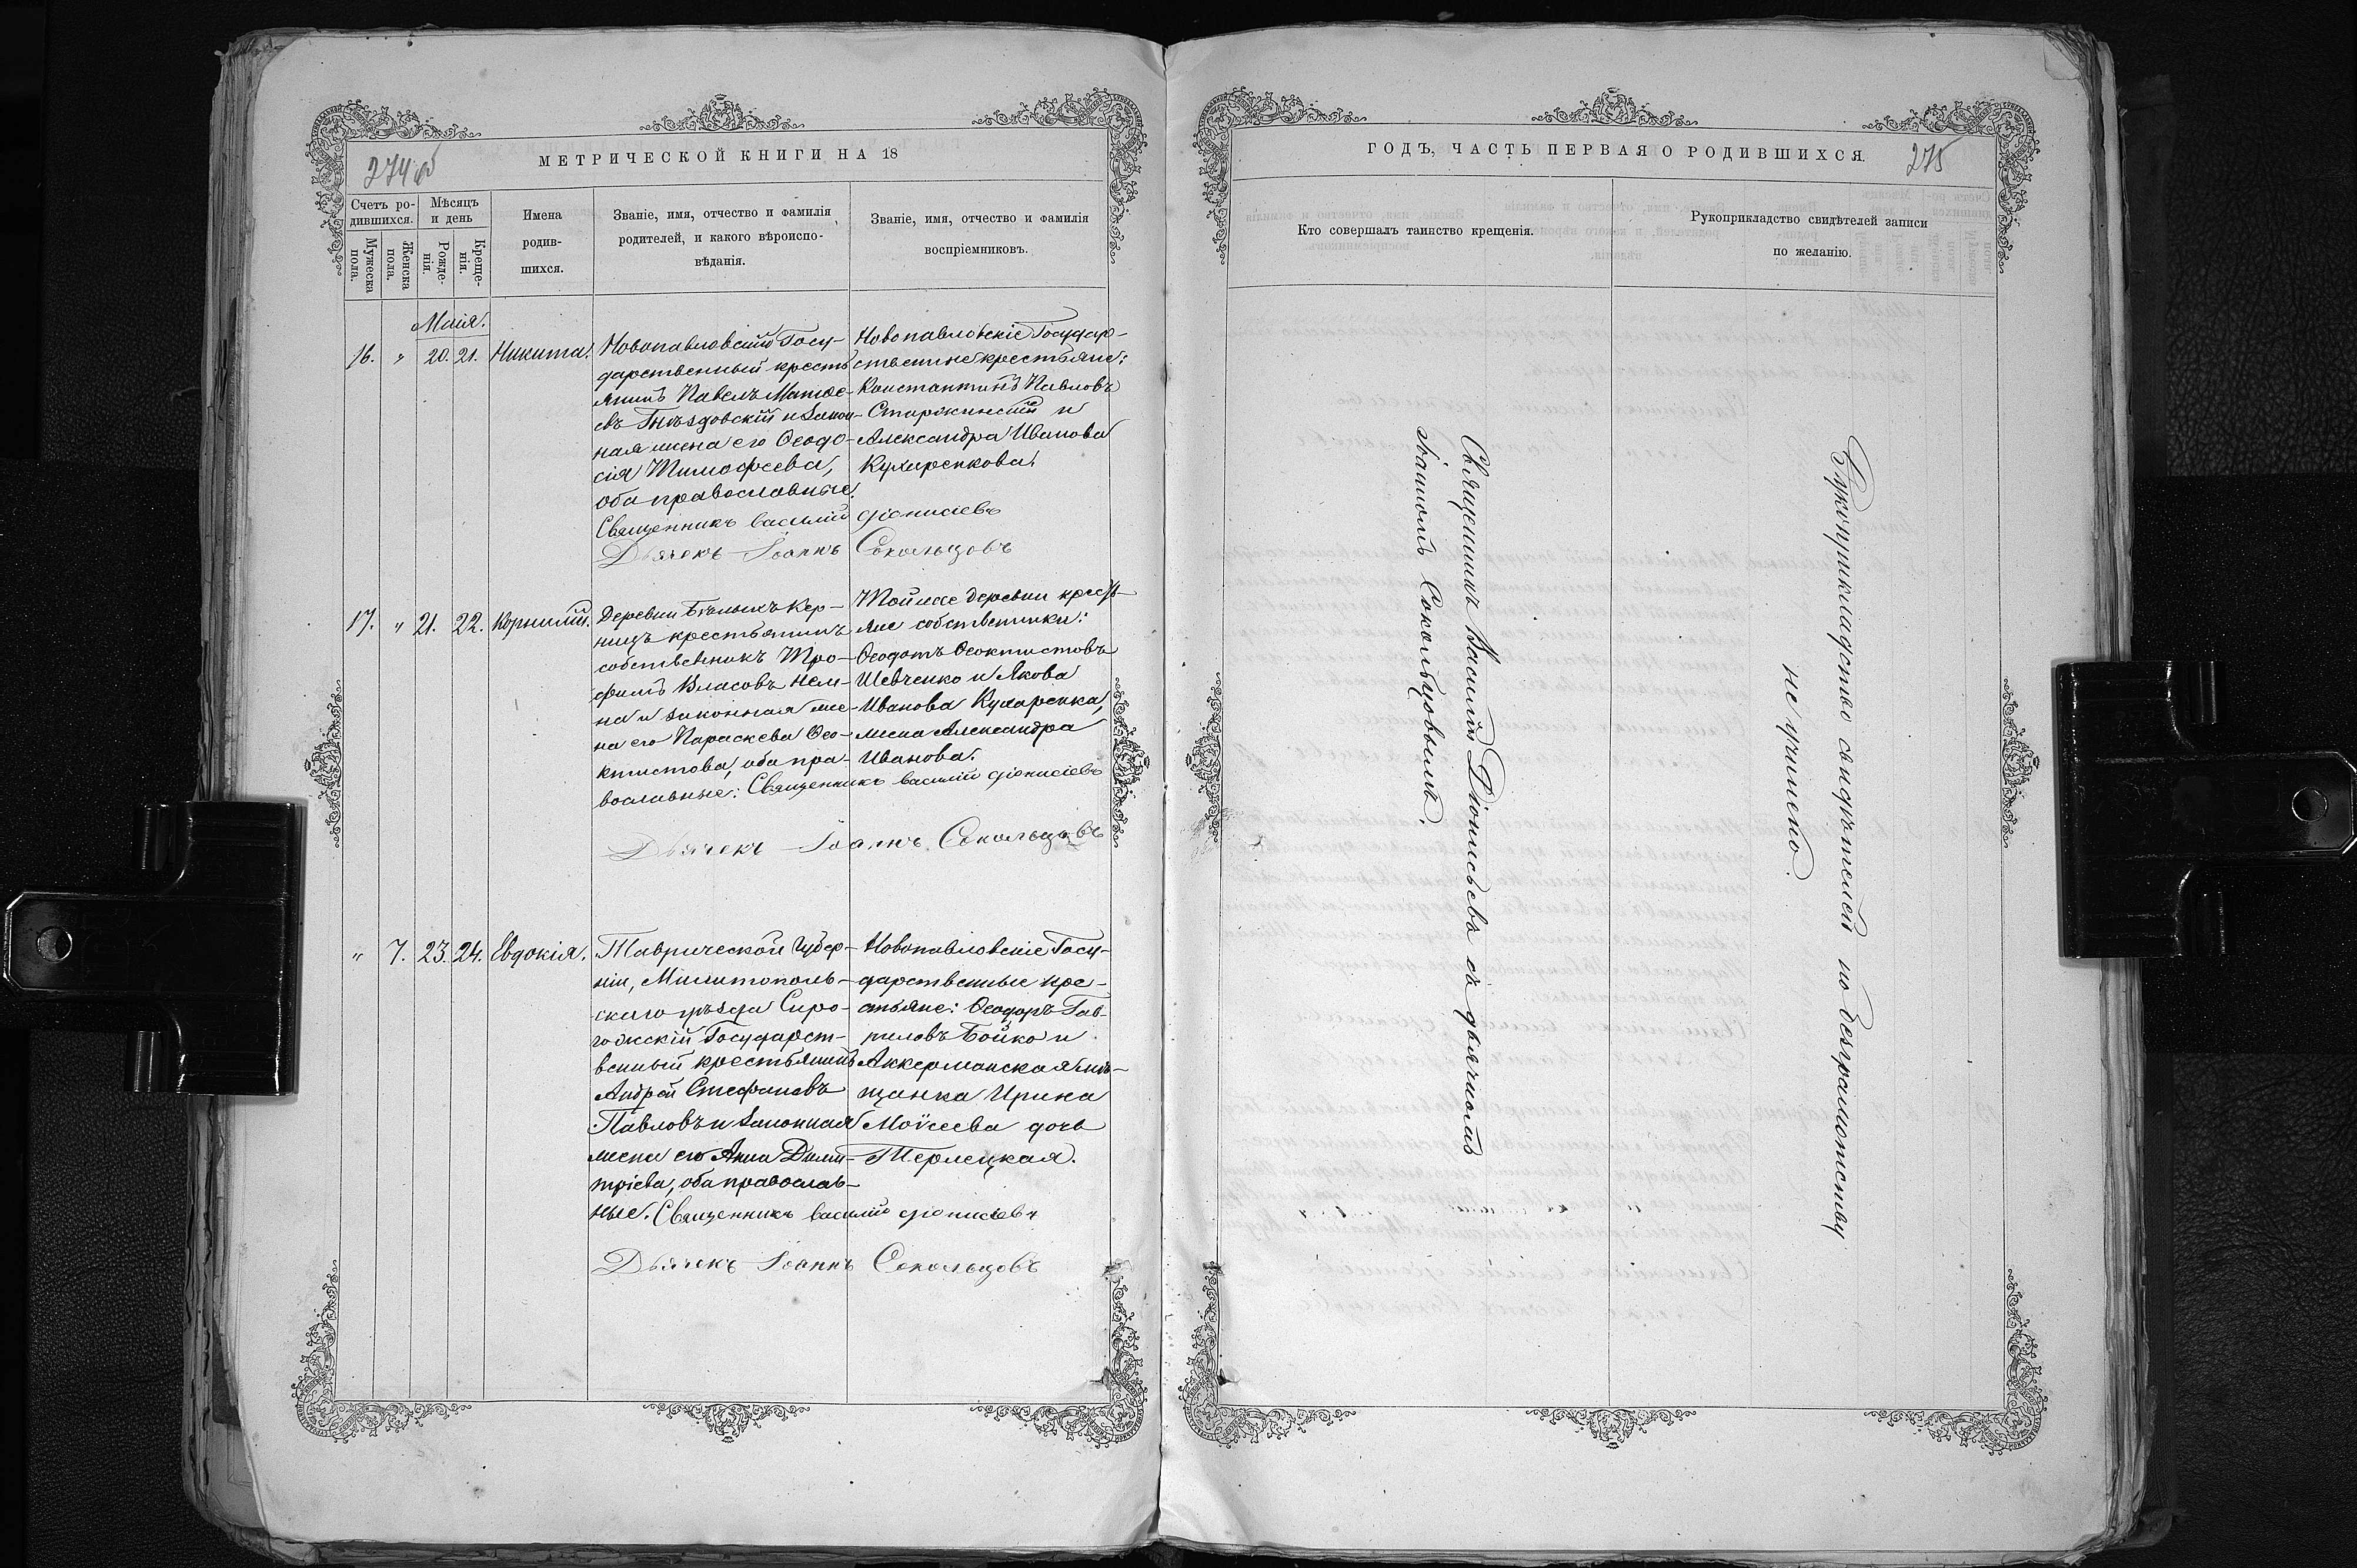 274об
МЕТРИЧЕСКОЙ КНИГИ НА 18
Счетъ ро-
дившихся.
Мужеска
пола.
Женска
пола.
Мѣсяцъ
и день
Рожде-
нія.
Креще-
нія.
Имена
родив-
шихся.
Званіе, имя, отчество и фамилія
родителей, и какого вѣроиспо-
вѣданія.
Званіе, имя, отчество и фамилія
воспріемниковъ.
Маія.
16. " 20. 21. Никита.
Новопавловскій Госу-
дарственный кресть
янинъ Павелъ Матѳе-
евъ Гнѣздовскій и закон-
ная жена его Ѳеодо-
сія Тимофеева,
оба православные.
Священникъ Василій Діонисіевъ
Дьячекъ Іоаннъ Сокольцовъ
Новопавловскіе Государ-
ственные крестьяне:
Константинъ Павловъ
и
Александра Иванова
Кухаренкова.
17. " 21. 22. Корнилій.
Деревни Бѣлыхъ Кер-
ницъ крестьянинъ
собственникъ Тро-
фимъ Власовъ Нем-
на и законная же-
на его Параскева Ѳео-
ктистова, оба пра-
вославные: Священникъ Василій Діонисіевъ
Дьячекъ Іоаннъ Сокольцовъ
Тойже деревни кресть-
яне собственники:
Ѳеодотъ Ѳеоктистовъ
Шевченко и Якова
Иванова Кухаренка,
жена Александра
Иванова.
" 7. 23. 24. Евдокія.
Таврической Губер-
ніи, Милитополь-
скаго уѣзда Сиро-
гожскій Государст-
венный крестьянинъ
Андрей Стефановъ
Павловъ и законная
жена его Анна Дими-
тріева, оба православ-
ные. Священникъ Василій Діонисіевъ
Дьячекъ Іоаннъ Сокольцовъ
Новопавловскіе Госу-
дарственные кре-
стьяне: Ѳеодоръ Гав-
риловъ Бойко и
Аккерманская мѣ-
щанка Ирина
Моісеева дочь
Терлецкая.
ГОДЪ, ЧАСТЬ ПЕРВАЯ О РОДИВШИХСЯ.
275
Кто совершалъ таинство крещенія.
Рукоприкладство свидѣтелей записи
по желанію.
Священникъ Василій Діонисьевъ съ дьячкомъ
Іоанномъ Сокольцовымъ.
Рукоприкладство свидѣтелей по безграмотству
не учинено.